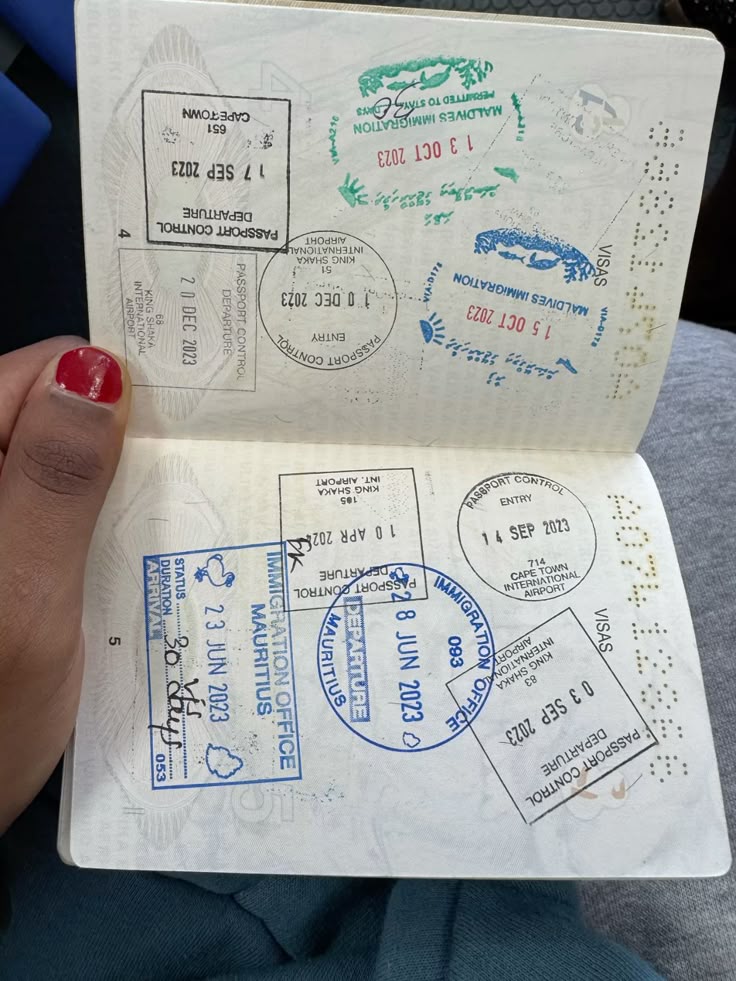 4
PASSPORT CONTROL
DEPARTURE
17 SEP 2023
651
CAPETOWN
MALDIVES IMMIGRATION
PERMITTED TO STAY
DAYS
13 OCT 2023
VISAS
MALDIVES IMMIGRATION
15 OCT 2023
PASSPORT CONTROL
ENTRY
10 DEC 2023
51
KING SHAKA
INTERNATIONAL
AIRPORT
PASSPORT CONTROL
DEPARTURE
20 DEC 2023
68
KING SHAKA
INTERNATIONAL
AIRPORT
5
PASSPORT CONTROL
DEPARTURE
10 APR 2024
185
KING SHAKA
INT. AIRPORT
PASSPORT CONTROL
ENTRY
14 SEP 2023
714
CAPE TOWN
INTERNATIONAL
AIRPORT
VISAS
IMMIGRATION OFFICE
MAURITIUS
23 JUN 2023
STATUS
DURATION 30 days
ARRIVAL
053
IMMIGRATION OFFICE
093
28 JUN 2023
DEPARTURE
MAURITIUS
PASSPORT CONTROL
DEPARTURE
03 SEP 2023
83
KING SHAKA
INTERNATIONAL
AIRPORT